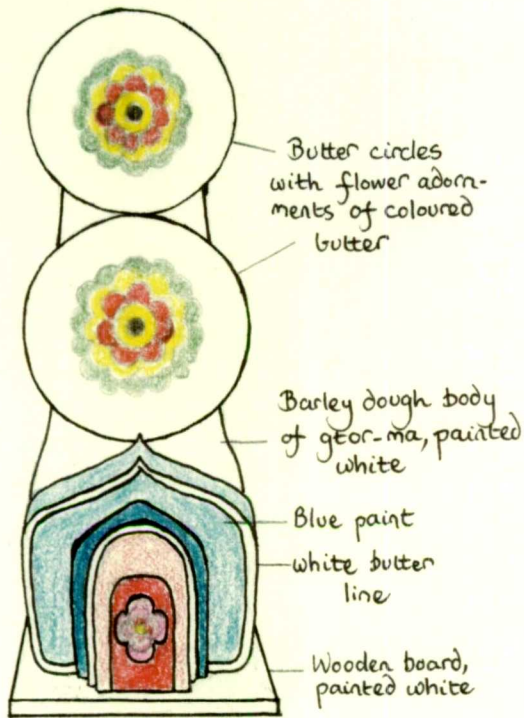 Butter circles
with flower adorn-
ments of coloured
butter
Barley dough body
of gtor-ma, painted
white
Blue paint
white butter
line
Wooden board,
painted white